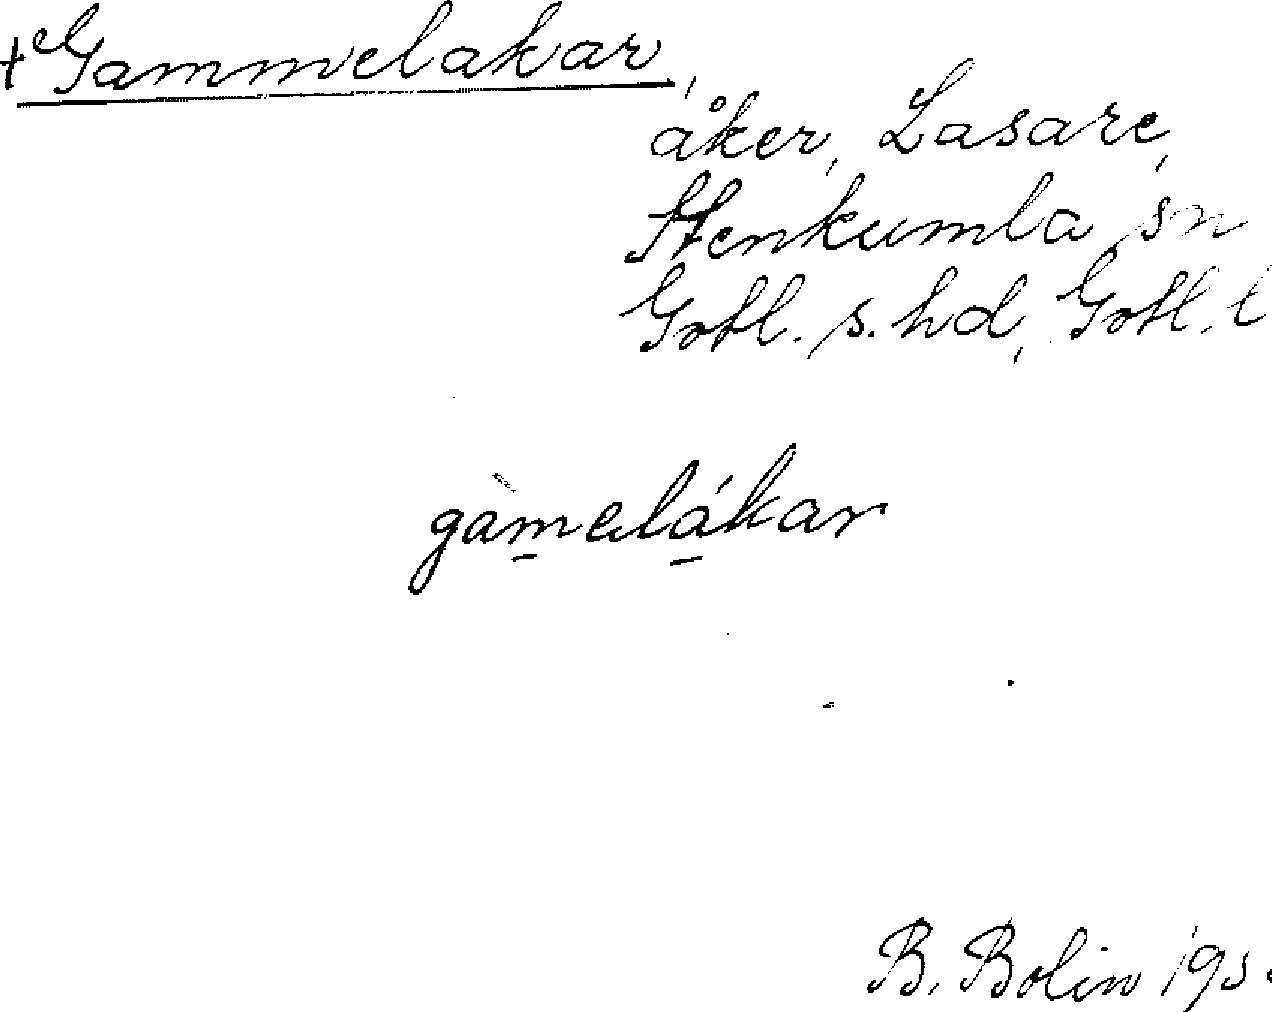 +Gammelakar,
åker, Lasare,
Stenkumla sn
Gotl. s. hd, Gotl. l
gàmelákar
B. Bolin